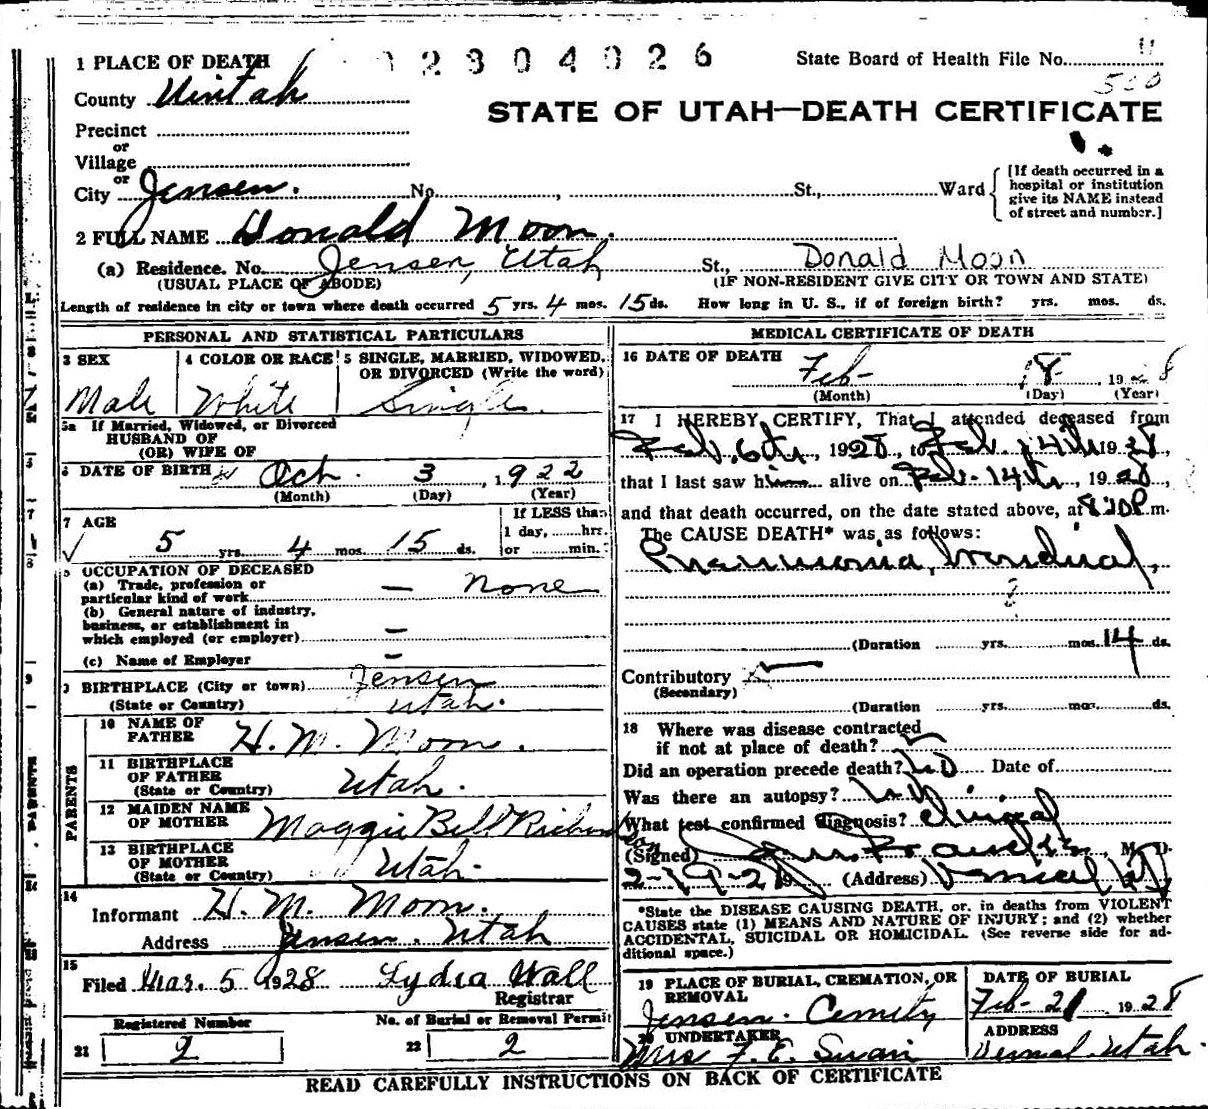 1 PLACE OF DEATH
2304026
State Board of Health File No.
500
County Uintah
STATE OF UTAH—DEATH CERTIFICATE
Precinct
or
Village
or
City Jensen. No. , St., Ward
[If death occurred in a
hospital or institution
give its NAME instead
of street and number.]
2 FULL NAME Donald Moon.
(a) Residence. No. Jensen, Utah St., Donald Moon
(USUAL PLACE OF ABODE) (IF NON-RESIDENT GIVE CITY OR TOWN AND STATE)
Length of residence in city or town where death occurred 5 yrs. 4 mos. 15 ds. How long in U. S., if of foreign birth? yrs. mos. ds.
PERSONAL AND STATISTICAL PARTICULARS
3 SEX
Male
4 COLOR OR RACE
White
5 SINGLE, MARRIED, WIDOWED,
OR DIVORCED (Write the word)
Single
5a If Married, Widowed, or Divorced
HUSBAND OF
(OR) WIFE OF
6 DATE OF BIRTH Oct. 3, 1922
(Month) (Day) (Year)
7 AGE
5 yrs. 4 mos. 15 ds.
If LESS than
1 day, hrs.
or min.
8 OCCUPATION OF DECEASED
(a) Trade, profession or
particular kind of work — none
(b) General nature of industry,
business, or establishment in
which employed (or employer) —
(c) Name of Employer —
9 BIRTHPLACE (City or town) Jensen
(State or Country) Utah.
PARENTS
10 NAME OF
FATHER H. M. Moon.
11 BIRTHPLACE
OF FATHER
(State or Country) Utah.
12 MAIDEN NAME
OF MOTHER Maggie Bell
13 BIRTHPLACE
OF MOTHER
(State or Country) Utah.
14
Informant H. M. Moon.
Address Jensen, Utah
15
Filed Mar. 5 1928 Lydia Wall
Registrar
Registered Number
21 2
No. of Burial or Removal Permit
22 2
MEDICAL CERTIFICATE OF DEATH
16 DATE OF DEATH Feb- 18 1928
(Month) (Day) (Year)
17 I HEREBY CERTIFY, That I attended deceased from
Feb. 6th, 1928, to Feb. 14th 1928,
that I last saw him alive on Feb. 14th, 1928,
and that death occurred, on the date stated above, at m.
The CAUSE DEATH* was as follows:
Pneumonia,
(Duration yrs. mos. 14 ds.
Contributory
(Secondary)
(Duration yrs. mos. ds.
18 Where was disease contracted
if not at place of death?
Did an operation precede death? no Date of
Was there an autopsy? no
What test confirmed diagnosis? clinical
(Signed) M. D.
(Address) Vernal
*State the DISEASE CAUSING DEATH, or, in deaths from VIOLENT
CAUSES state (1) MEANS AND NATURE OF INJURY; and (2) whether
ACCIDENTAL, SUICIDAL OR HOMICIDAL. (See reverse side for ad-
ditional space.)
19 PLACE OF BURIAL, CREMATION, OR
REMOVAL
Jensen. Cemity
DATE OF BURIAL
Feb- 21 1928
20 UNDERTAKER
Mrs F. E. Swain
ADDRESS
Vernal, Utah.
READ CAREFULLY INSTRUCTIONS ON BACK OF CERTIFICATE